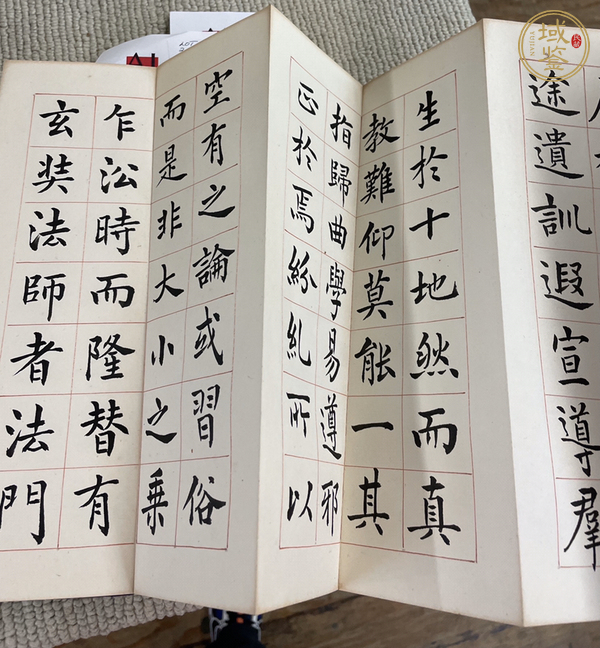 途遺訓遐宣導羣
生於十地然而真
教難仰莫能一其
指歸曲學易遵邪
正於焉紛糺所以
空有之論或習俗
而是非大小之乗
乍沿時而隆替有
玄奘法師者法門
域鑒